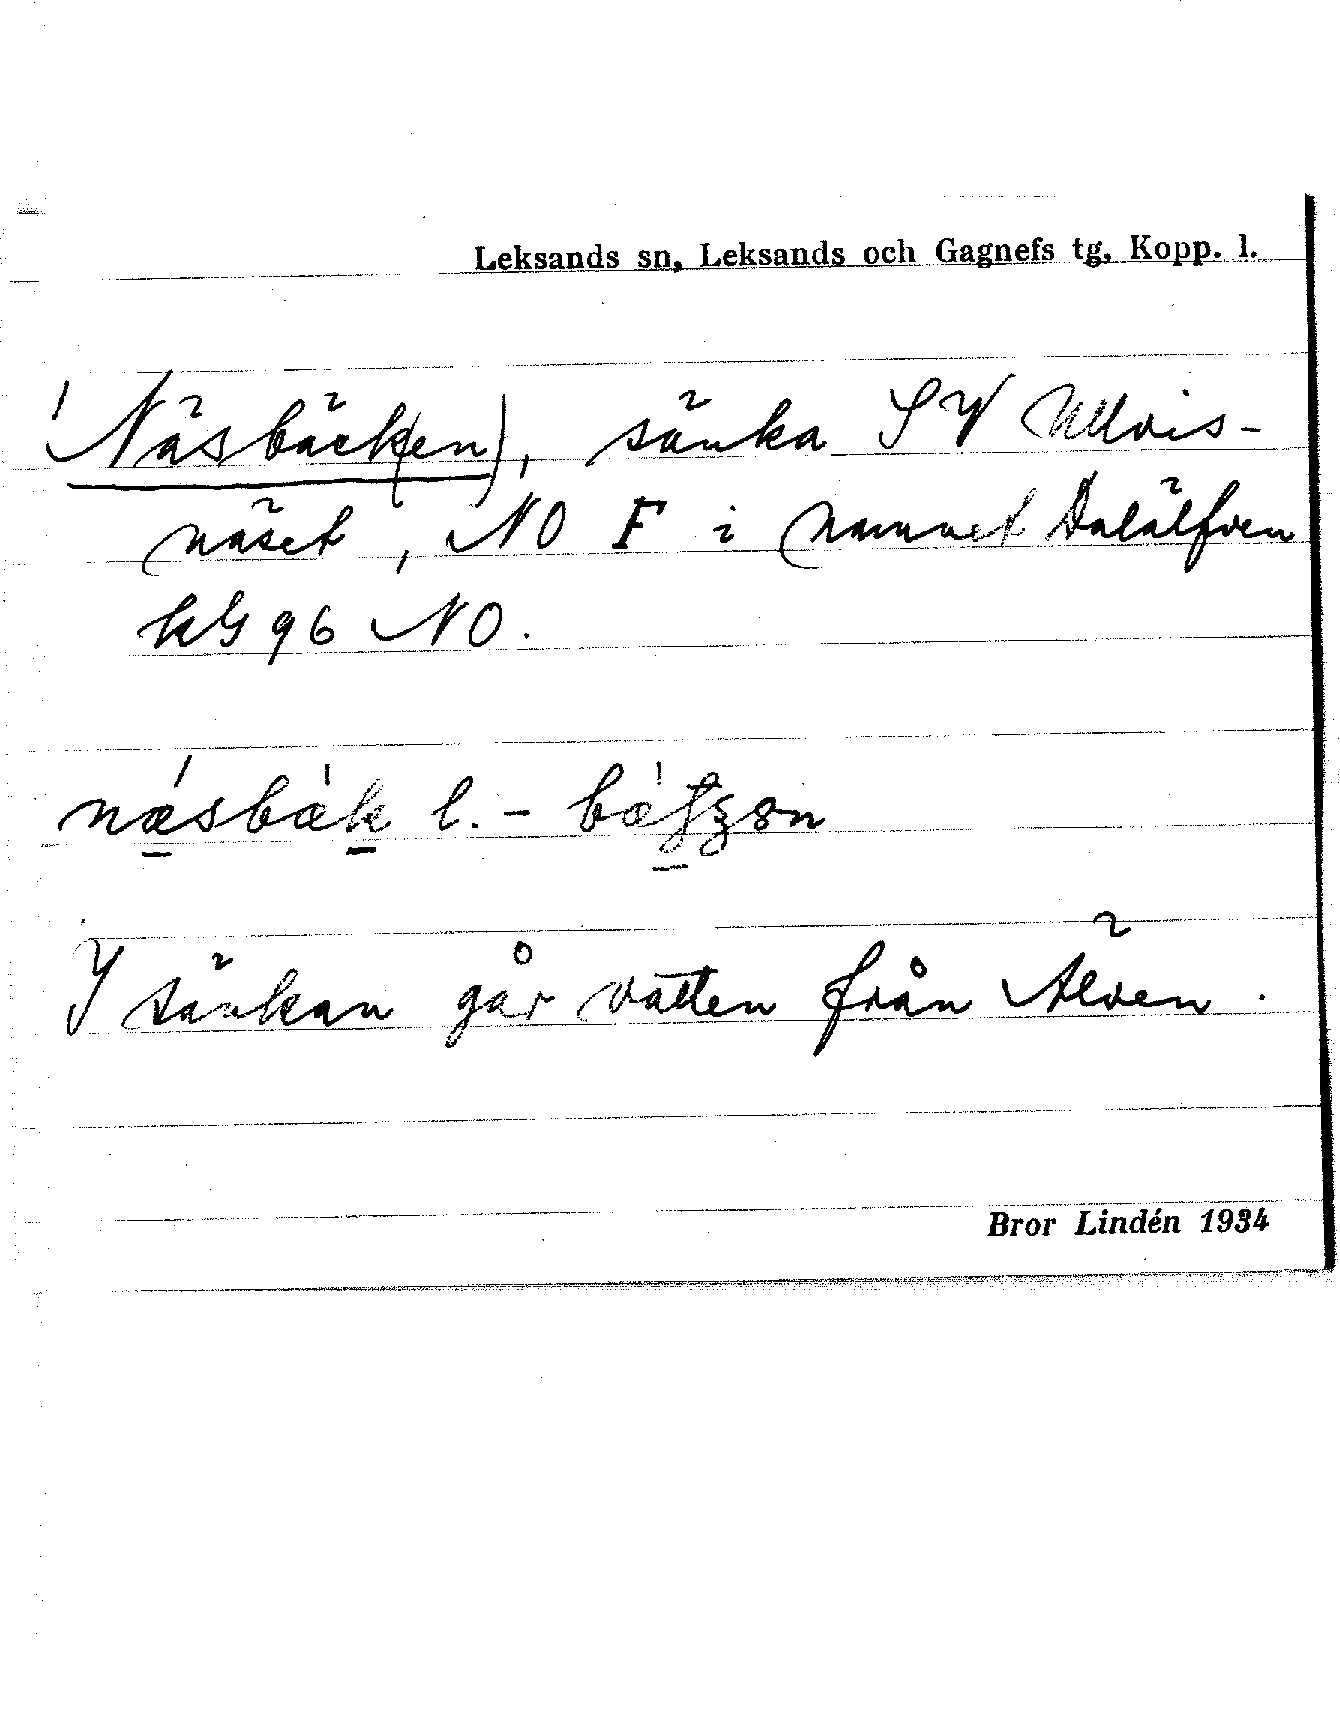 Leksands sn, Leksands och Gagnefs tg, Kopp. l.
Näsbäck(en), sänka SV Ullvis-
näset, NO F i namnet Dalälfven
kG 96 NO.
næsbæk l. -
I sänkan går vatten från Älven.
Bror Lindén 1934